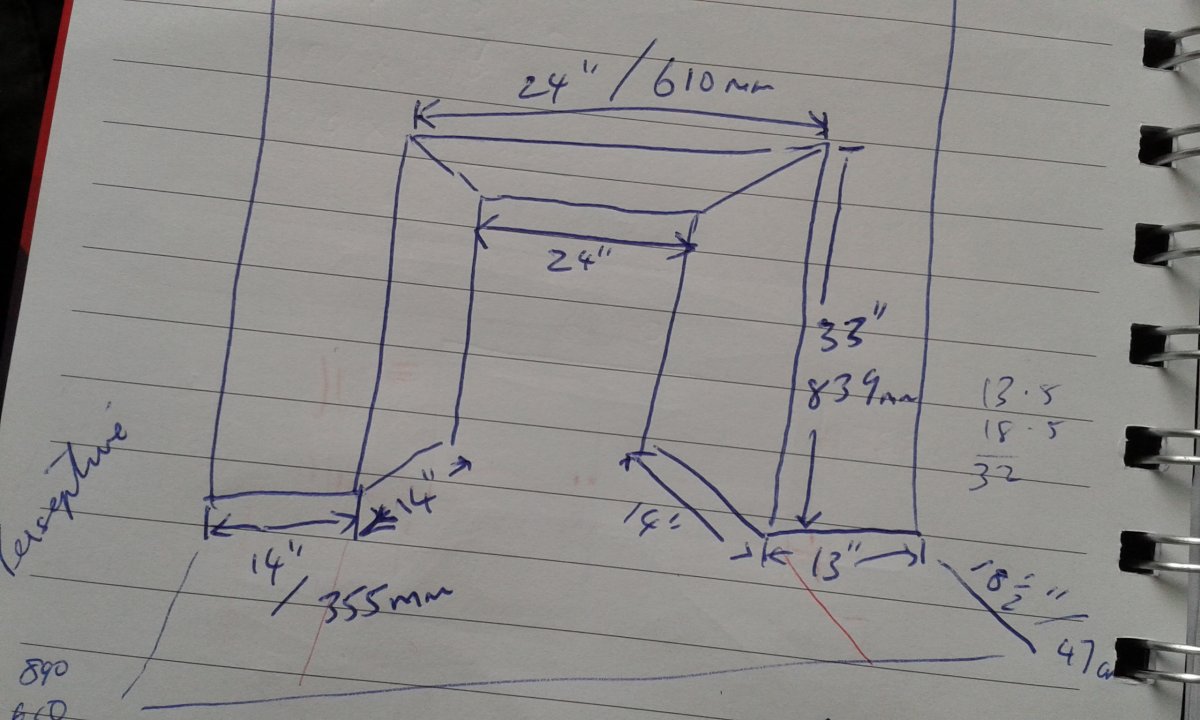 24" / 610mm
24"
33"
839mm
13.5
18.5
32
14"
14"
14"
/ 355mm
13"
18½"
47c
890